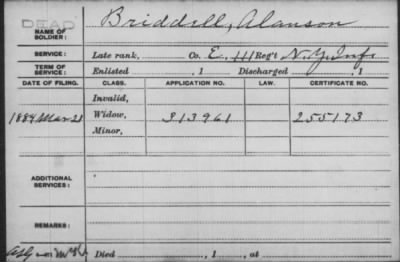 DEAD
NAME OF SOLDIER: Briddell, Alanson
SERVICE: Late rank, Co. E, 111 Reg't N.Y. Inf.
TERM OF SERVICE: Enlisted , 1 Discharged , 1
DATE OF FILING. CLASS. APPLICATION NO. LAW. CERTIFICATE NO.
Invalid,
1884 Mar 28 Widow, 313961 255173
Minor,
ADDITIONAL SERVICES:
REMARKS:
Died , 1 , at